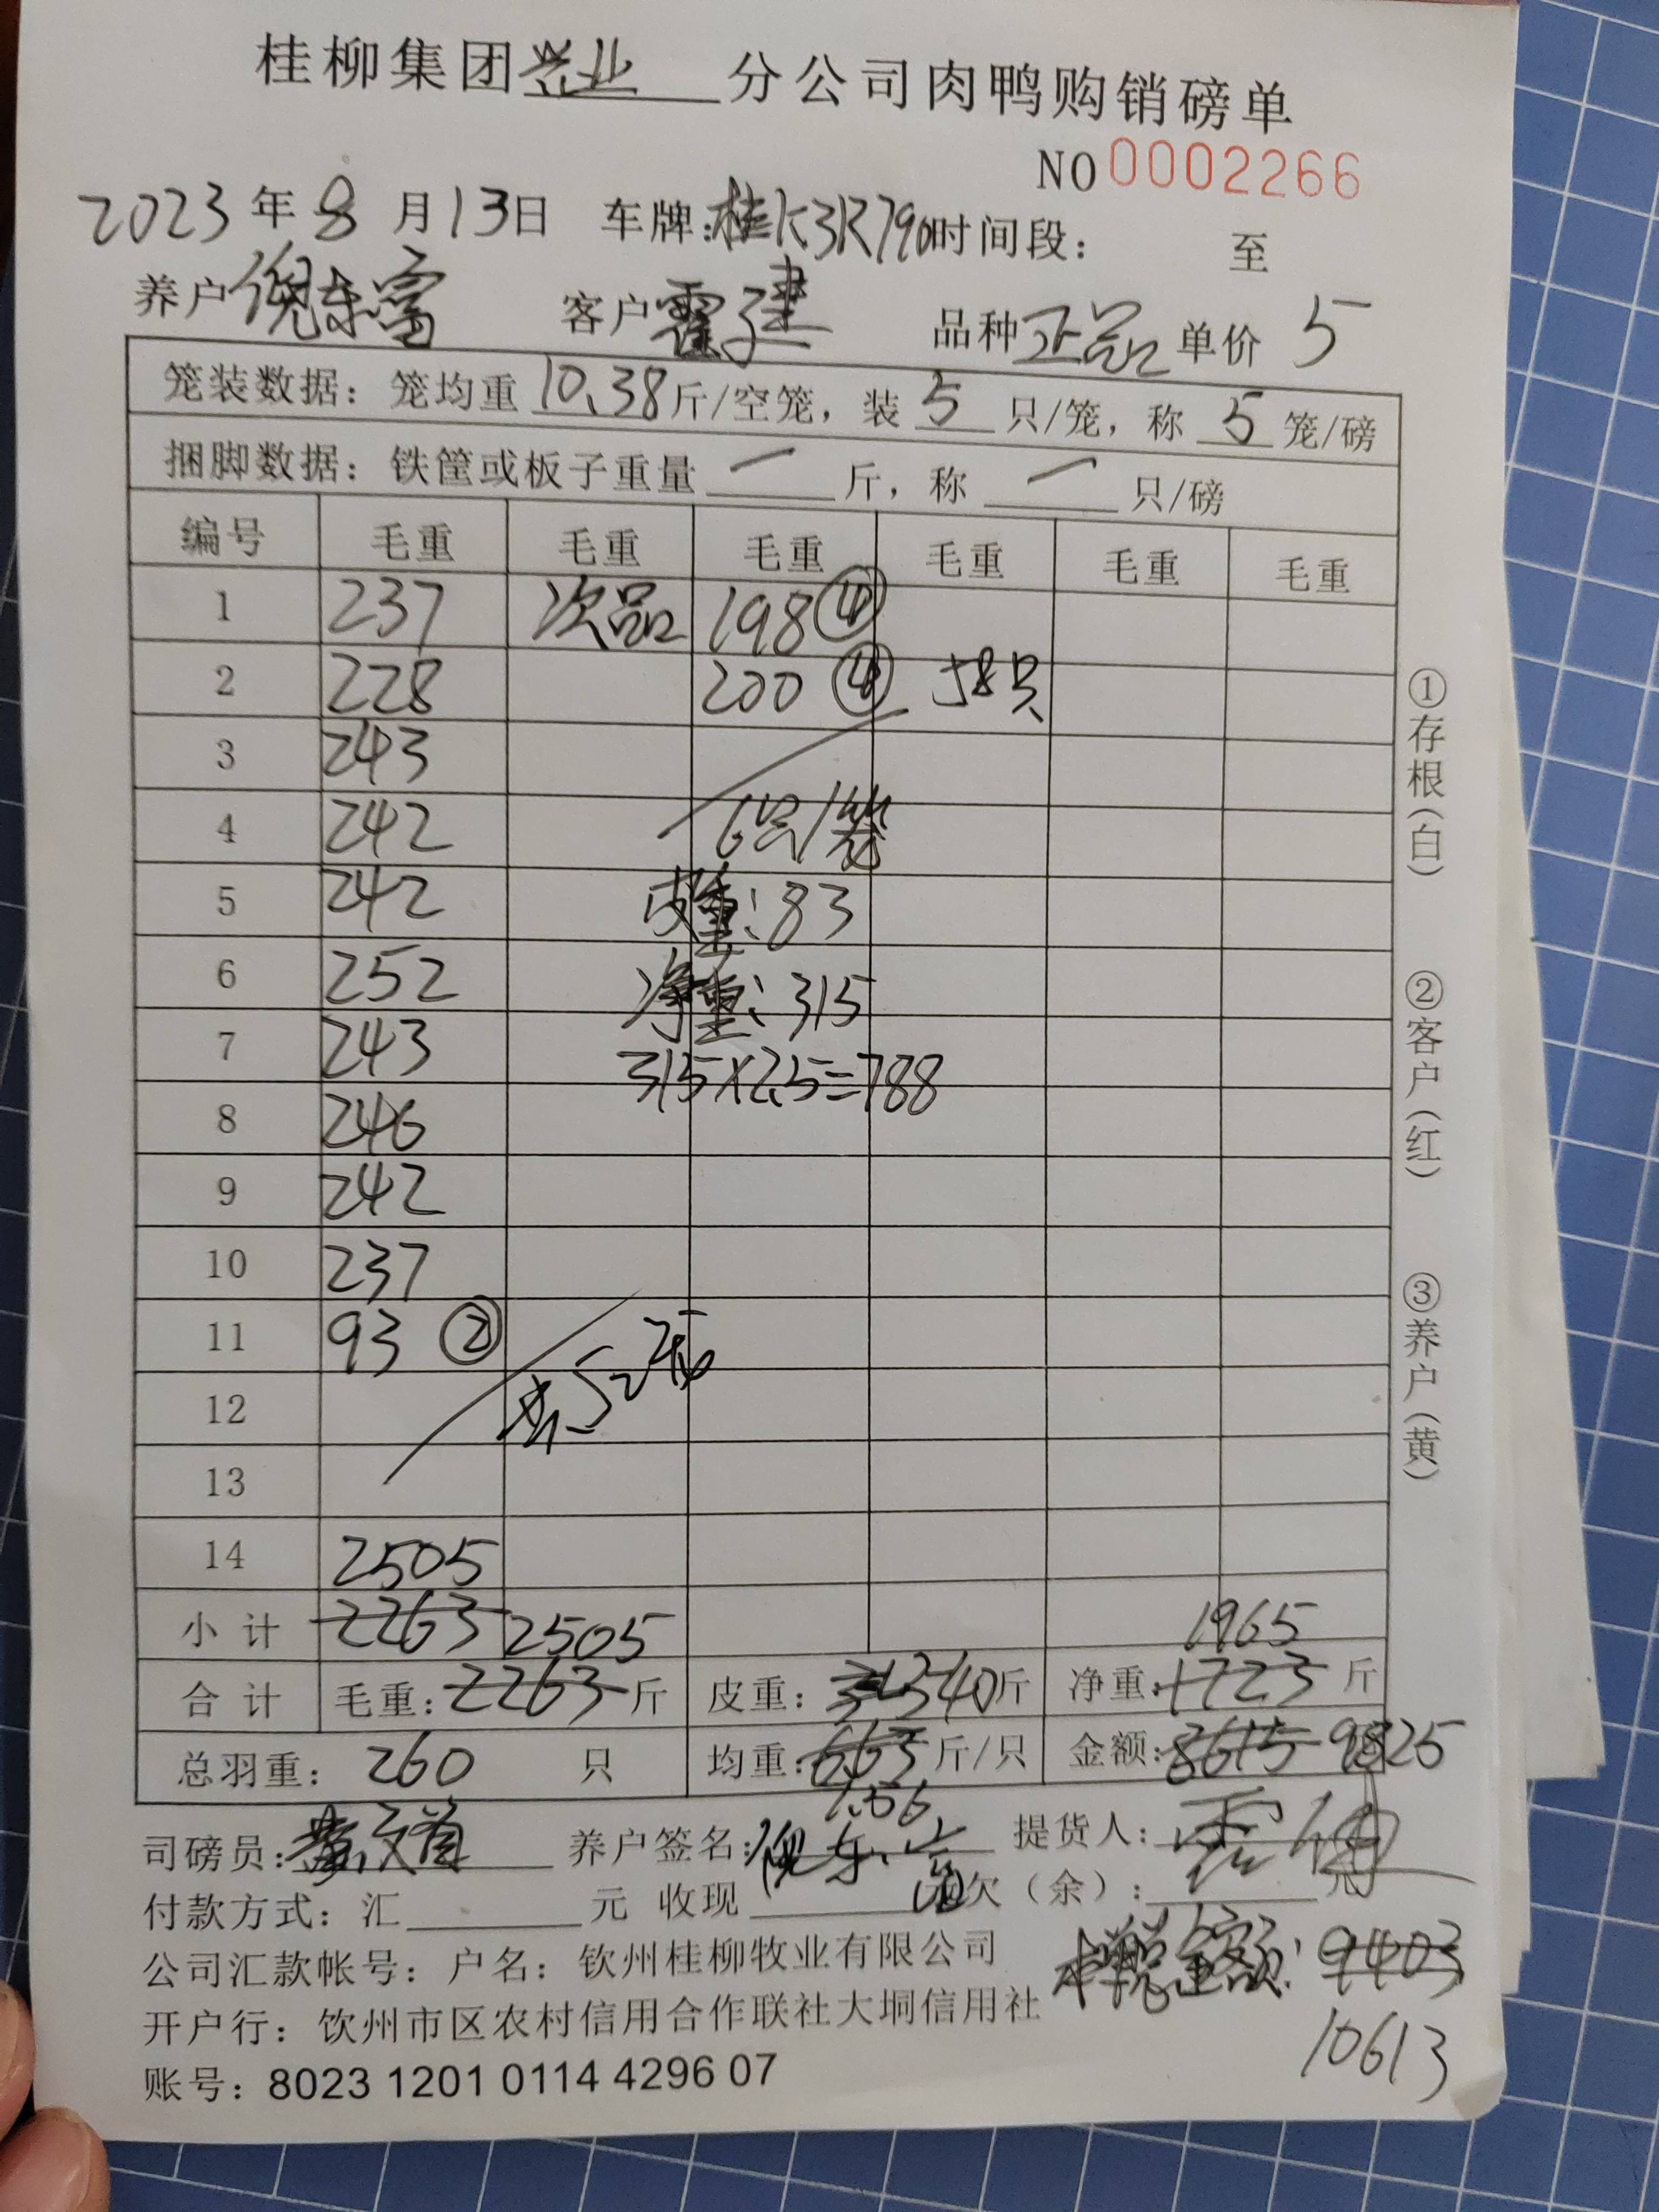 桂柳集团兴业分公司肉鸭购销磅单
NO 0002266
2023年8月13日 车牌:桂K3R790时间段: 至
养户倪东富 客户霍建 品种正品 单价 5
笼装数据: 笼均重 10.38斤/空笼, 装 5 只/笼, 称 5 笼/磅
捆脚数据: 铁筐或板子重量 一 斤, 称 一 只/磅
编号 毛重 毛重 毛重 毛重 毛重 毛重
1 237 次品 198④
2 228 200④ 58只
3 243
4 242 6只/笼
5 242 皮重:83
6 252 净重:315
7 243 315×2.5=788
8 246
9 242
10 237
11 93 ② 共52笼
12
13
14 2505
小计 2263 2505 1965
合计 毛重:2263斤 皮重: 540斤 净重:1723斤
总羽重: 260 只 均重:6.63斤/只 金额:8615 9825
7.56
司磅员: 养户签名:倪东富 提货人:
付款方式: 汇 元 收现 元 欠(余): 元
公司汇款帐号: 户名: 钦州桂柳牧业有限公司 本单总金额: 9403
开户行: 钦州市区农村信用合作联社大垌信用社
10613
账号: 8023 1201 0114 4296 07
①存根(白)
②客户(红)
③养户(黄)